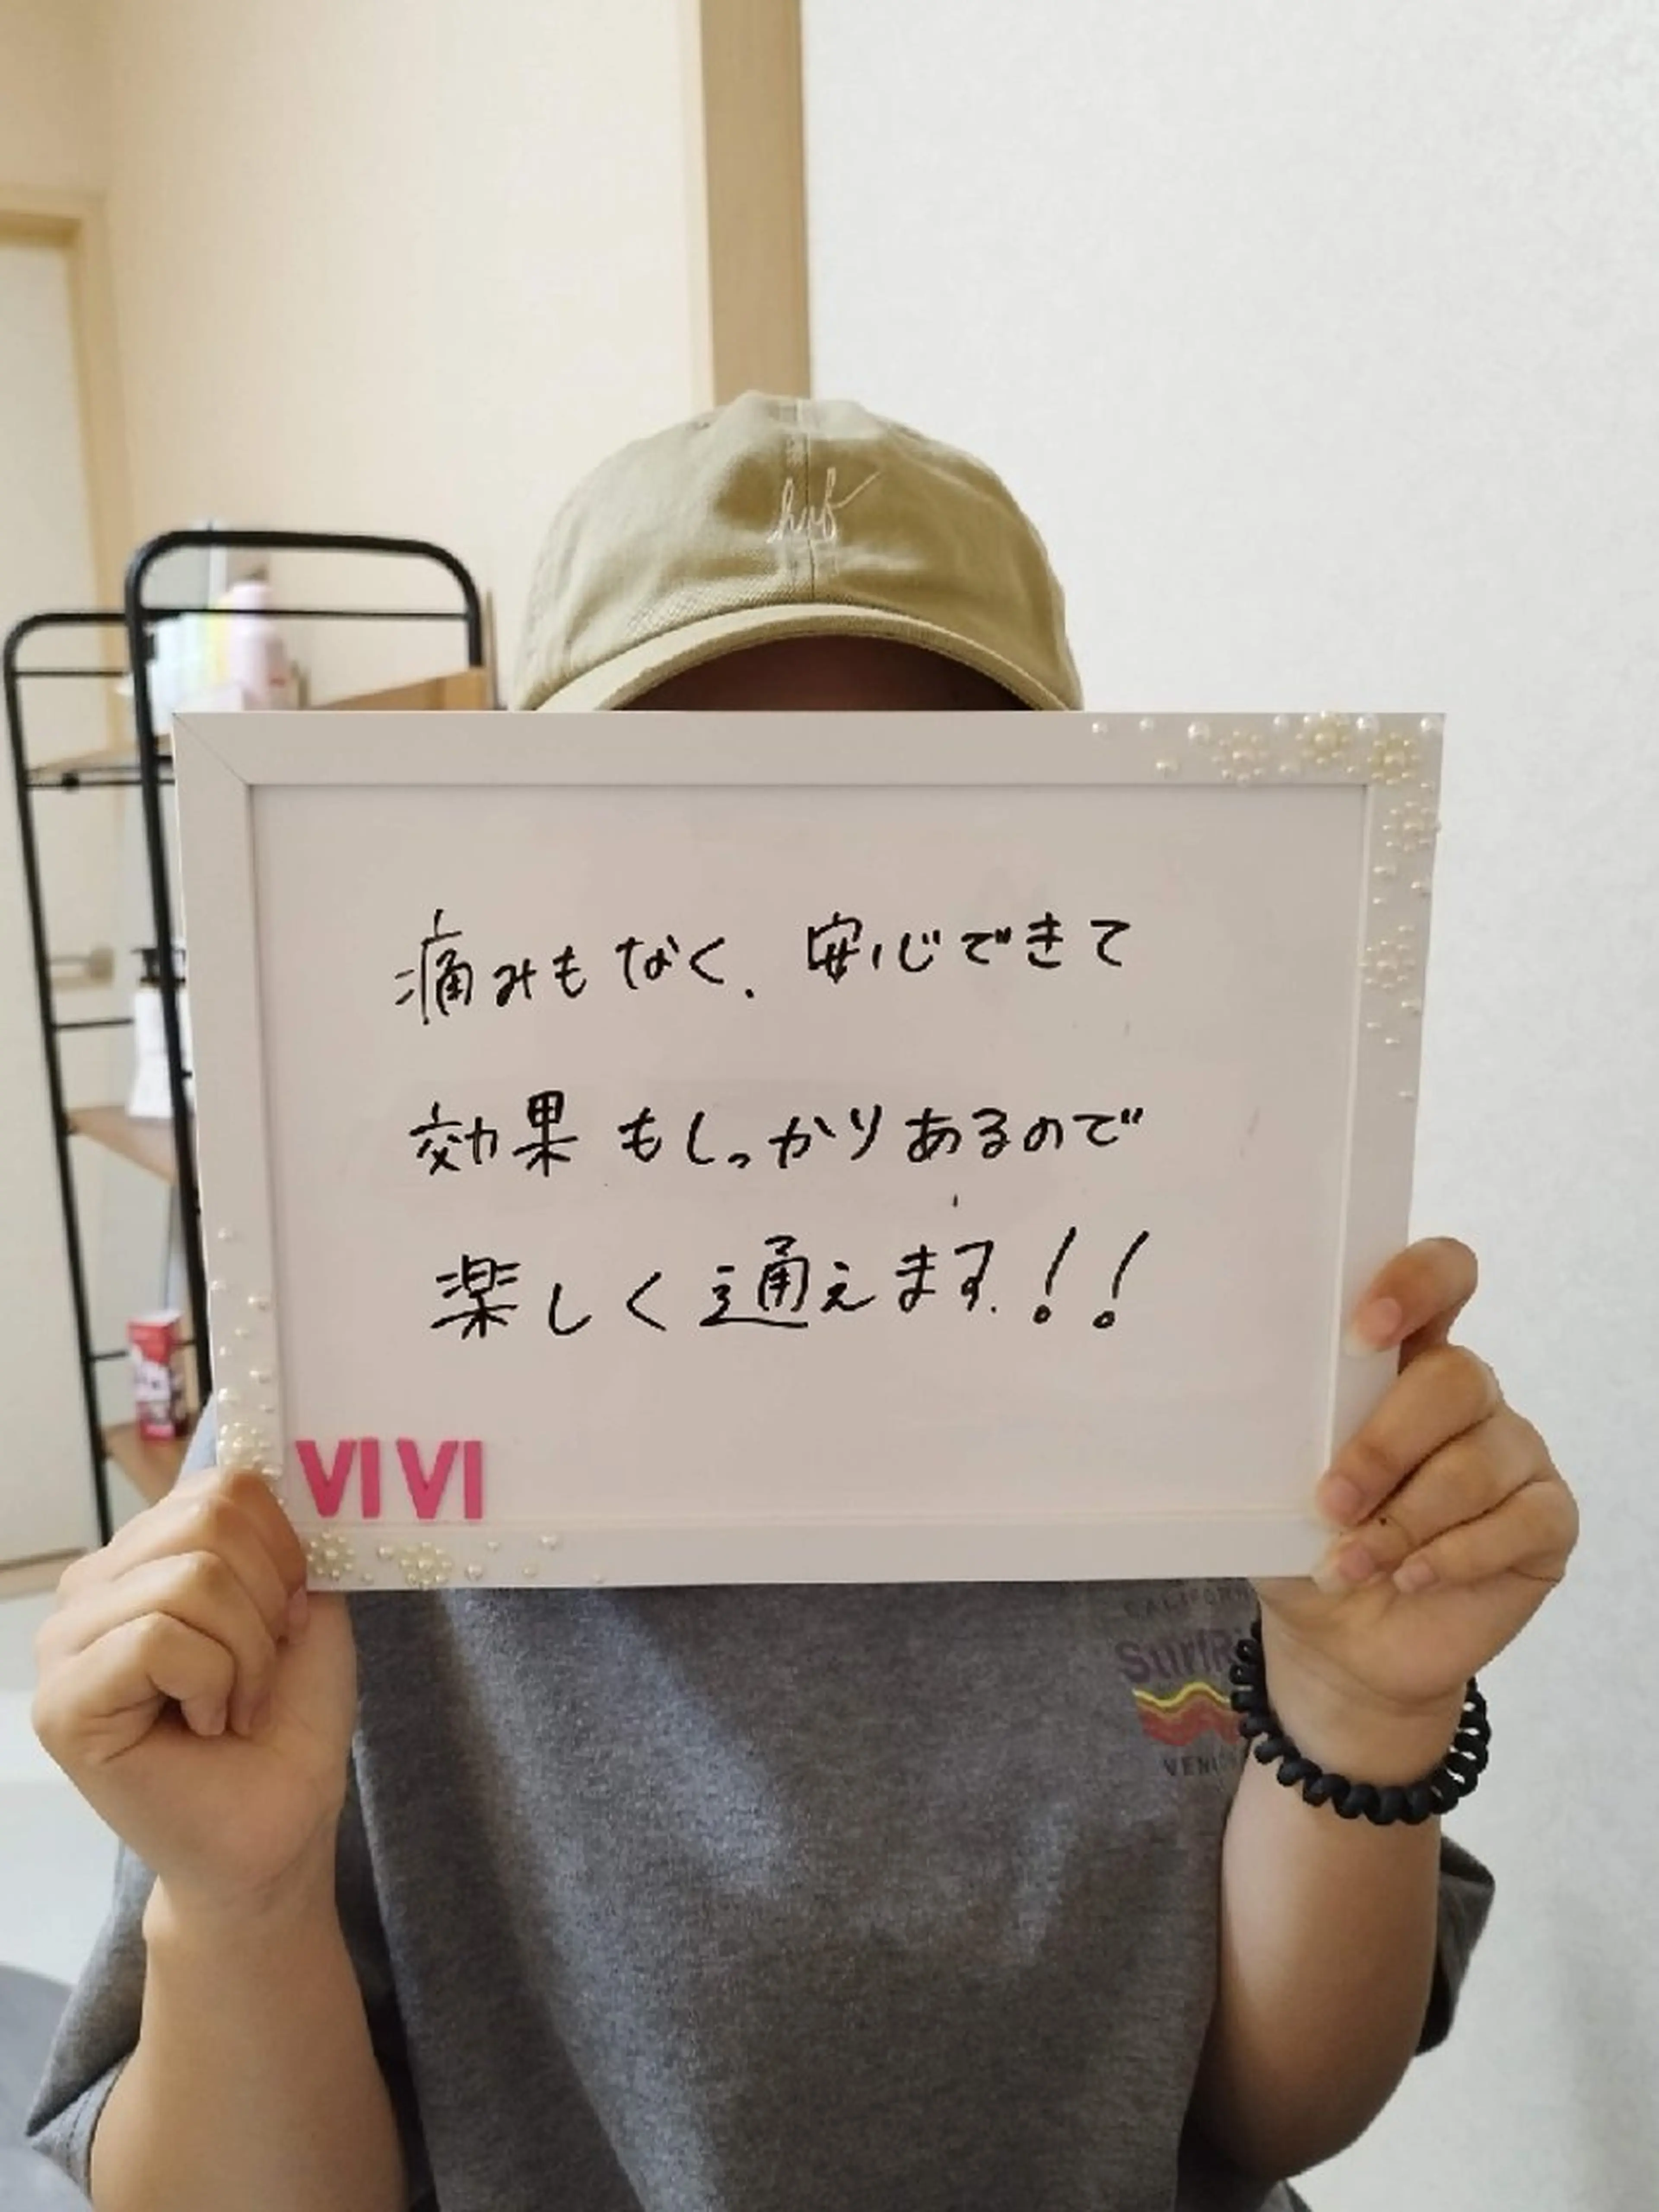 huf
痛みもなく、安心できて
効果もしっかりあるので
楽しく通えます！！
VIVI
CALIFORN
SurfRi
VENI